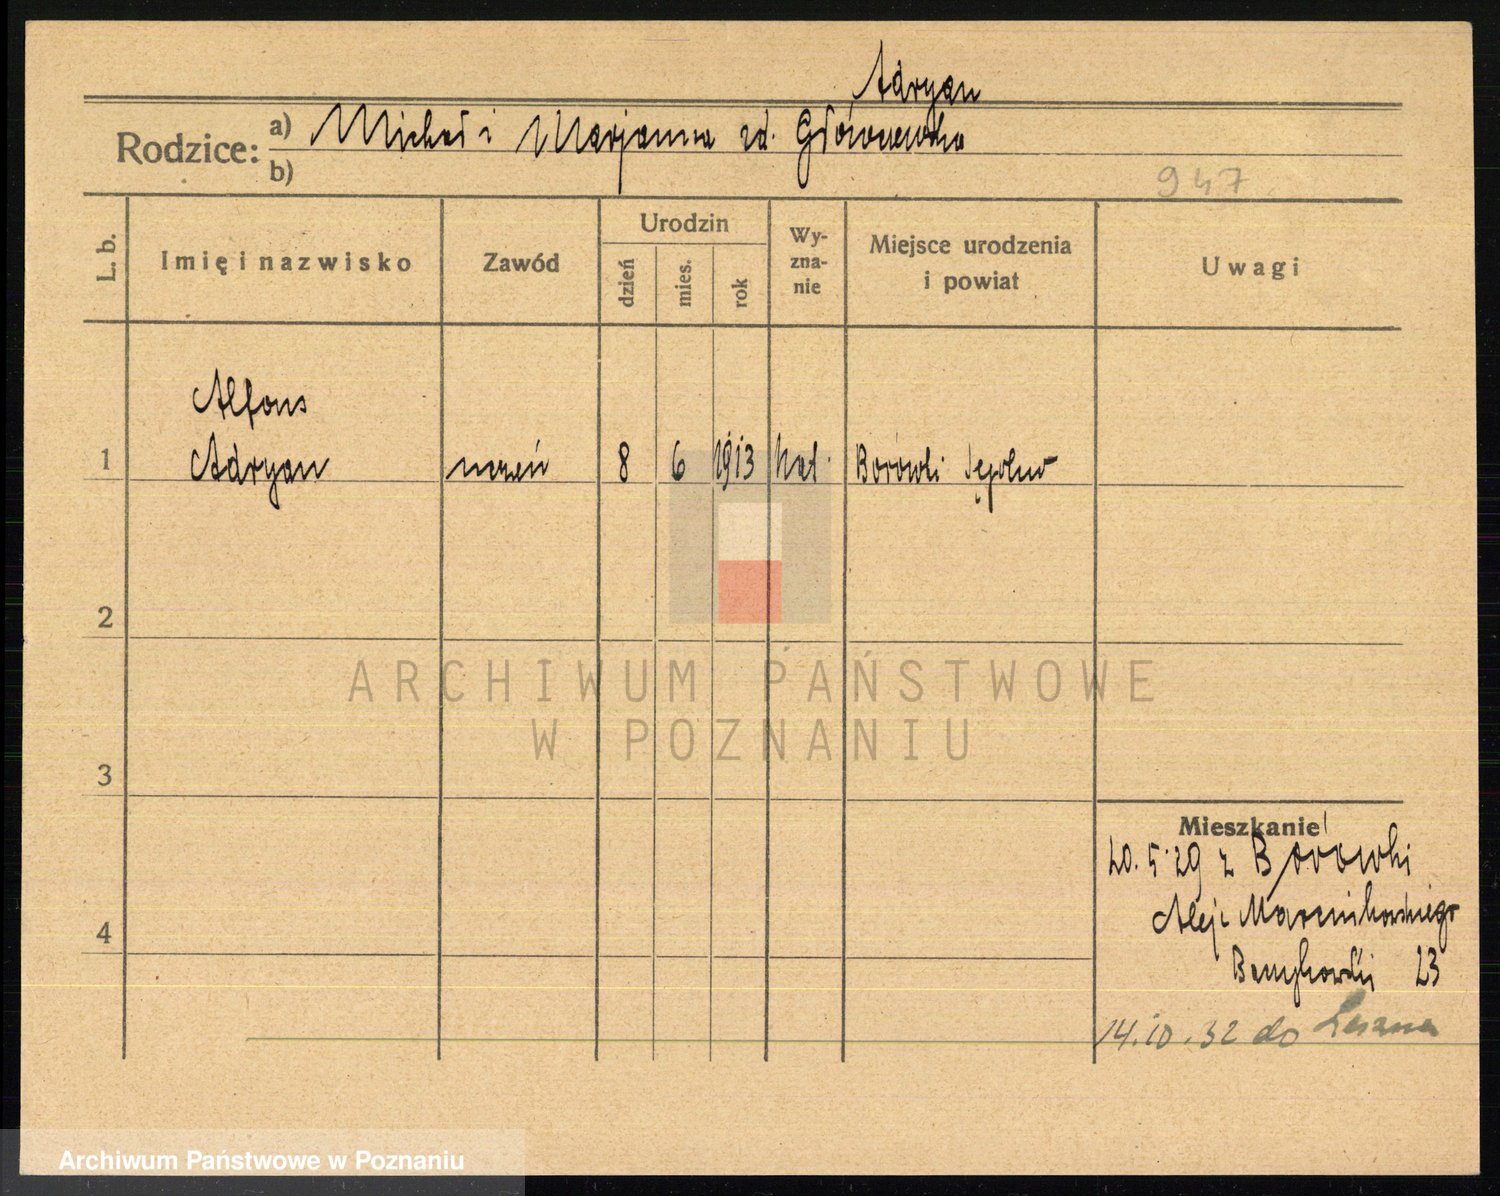 Adryan
Rodzice: a) Michał i Marjanna zd. Głównewska
b)
947
L. b.
Imię i nazwisko
Zawód
Urodzin
dzień
mies.
rok
Wy-
zna-
nie
Miejsce urodzenia
i powiat
Uwagi
Alfons
1 Adryan uczeń 8 6 1913 kat. Borówki Sępolno
2
ARCHIWUM PAŃSTWOWE
W POZNANIU
3
Mieszkanie
20. 5. 29 z Borówki
4
Aleje Marcinkowskiego
23
14.10.32 do Leszna
Archiwum Państwowe w Poznaniu